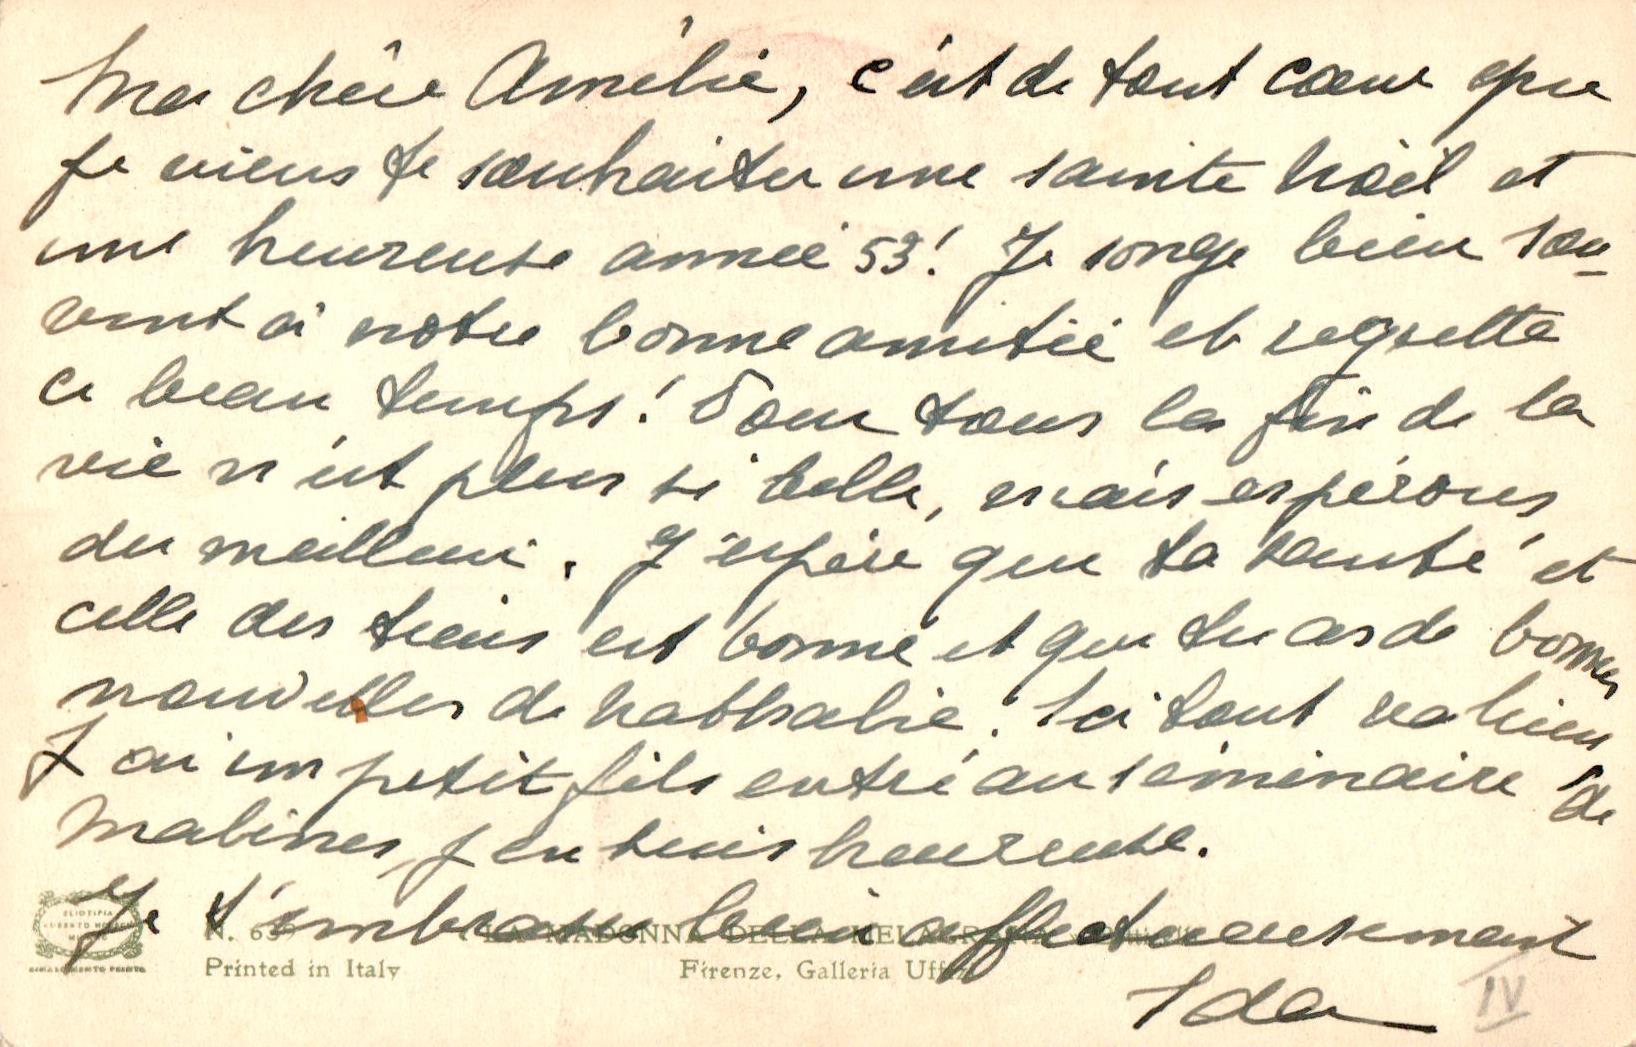 Ma chère Amélie, c'est de tout cœur que
je viens te souhaiter une sainte Noël et
une heureuse année 53! Je songe bien sou-
vent à notre bonne amitié et regrette
ce beau temps! Pour tous la fin de la
vie n'est plus si belle, mais espérons
du meilleur. J'espère que ta santé et
celle des tiens est bonne et que tu as de bonnes
nouvelles de Nathalie. Ici tout va bien
J'ai un petit fils entré au séminaire de
Malines, j'en suis heureuse.
Je t'embrasse bien affectueusement
N. 639 LA MADONNA DELLA MELAGRANA
Printed in Italy Firenze, Galleria Uffizi
Ida
IV